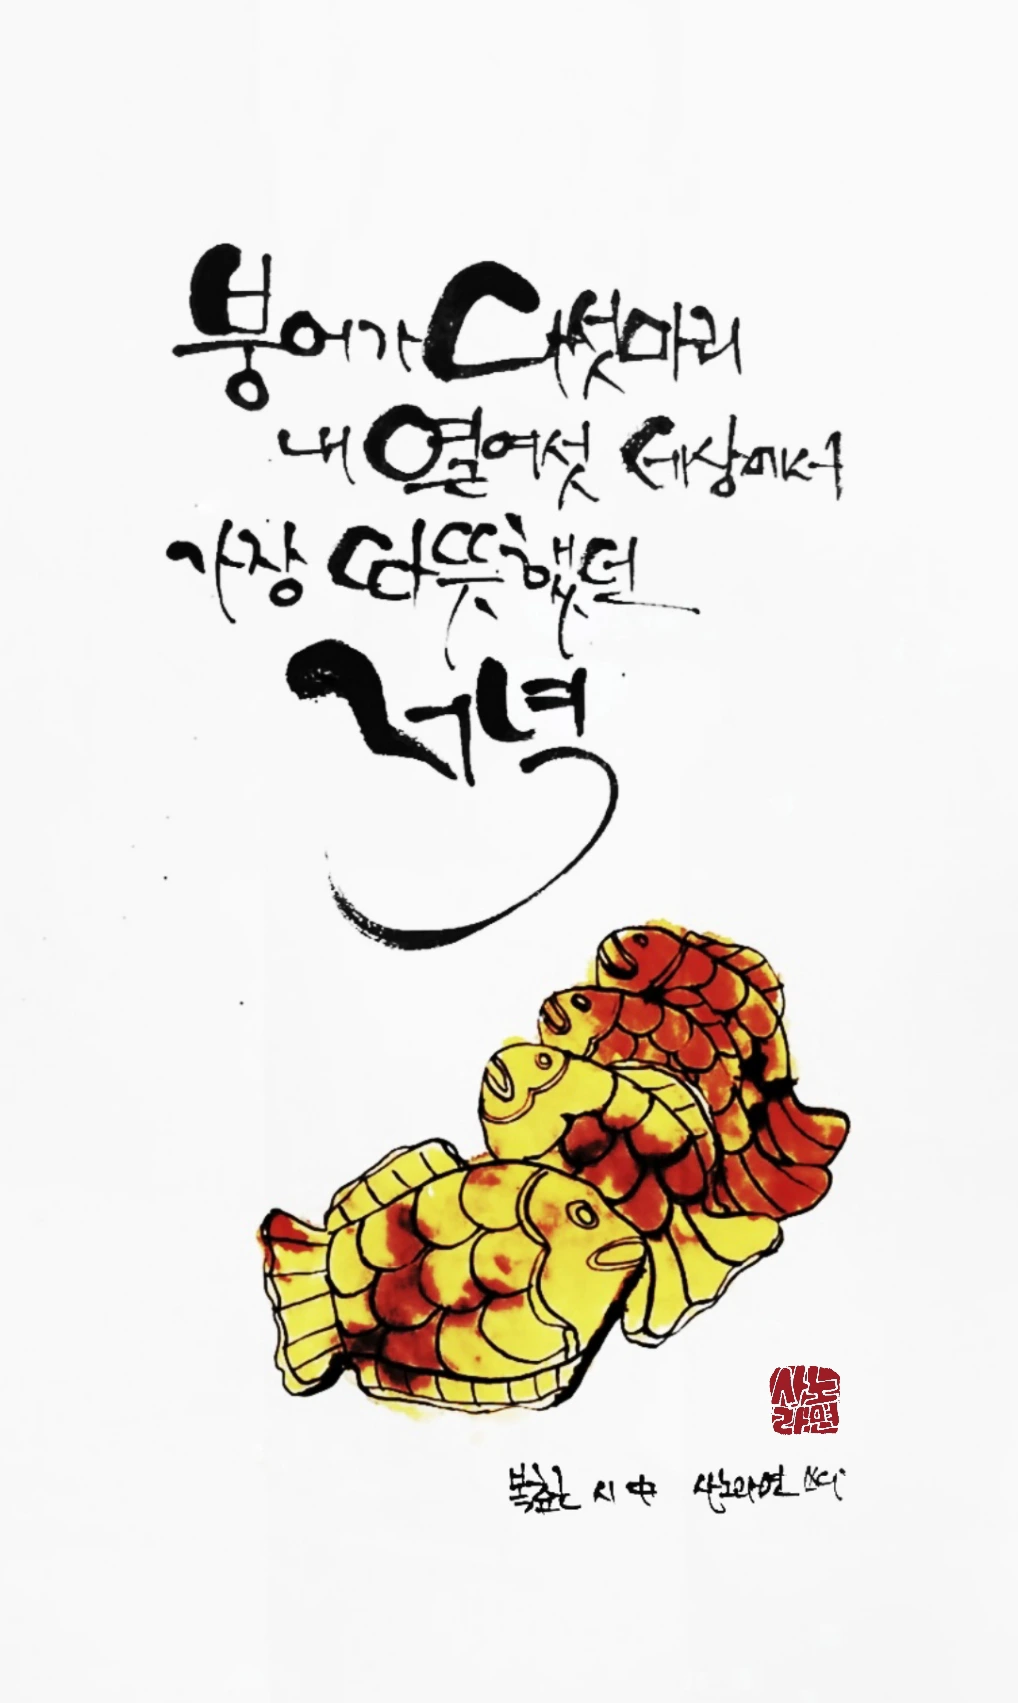 붕어가 다섯마리
내 열여섯 세상에서
가장 따뜻했던
저녁
사노
라면
복효근 시 中 사노라면 쓰다